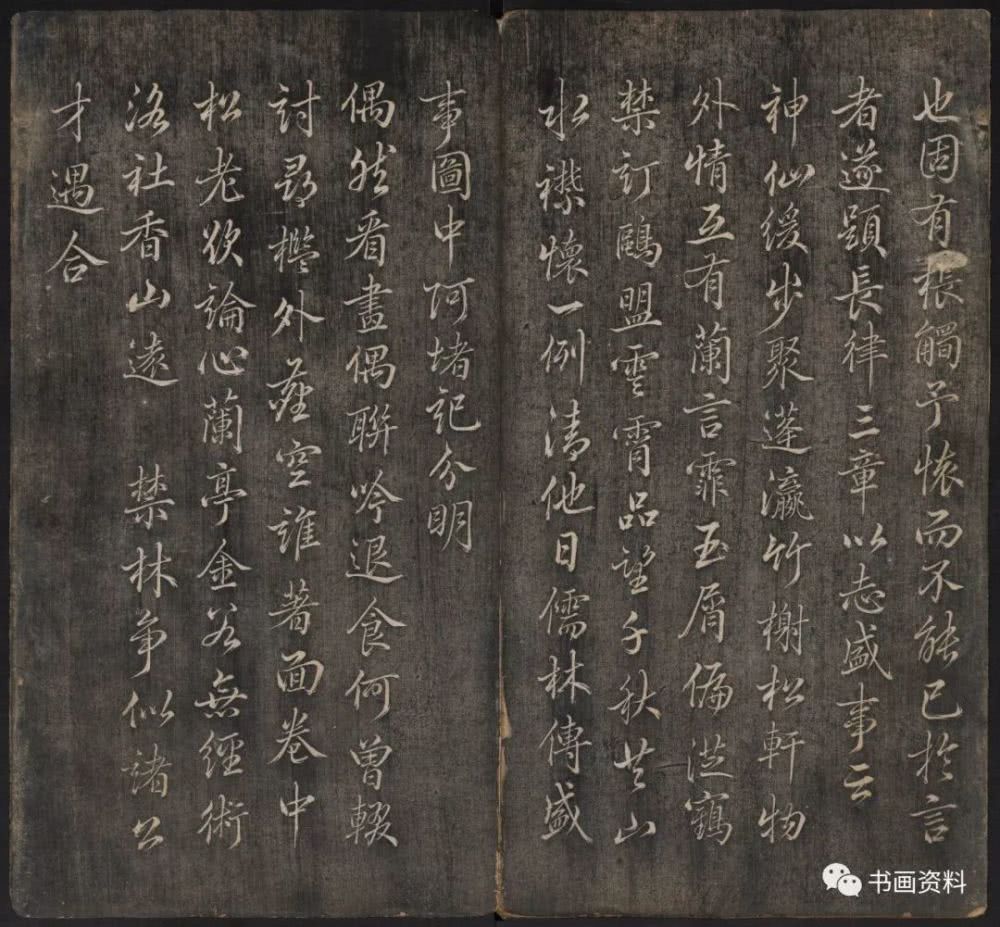 也固有棖觸予懷而不能已於言
者遂題長律三章以志盛事云
神仙緩步聚蓬瀛竹榭松軒物
外情互有蘭言霏玉屑偏從鶴
禁訂鷗盟雲霄品望千秋共山
水襟懷一例清他日儒林傳盛
事圖中阿堵記分明
偶然看畫偶聯吟退食何曾輟
討尋檻外塵空誰著面卷中
松老欲論心蘭亭金谷無經術
洛社香山遠禁林爭似諸公
才遇合
书画资料